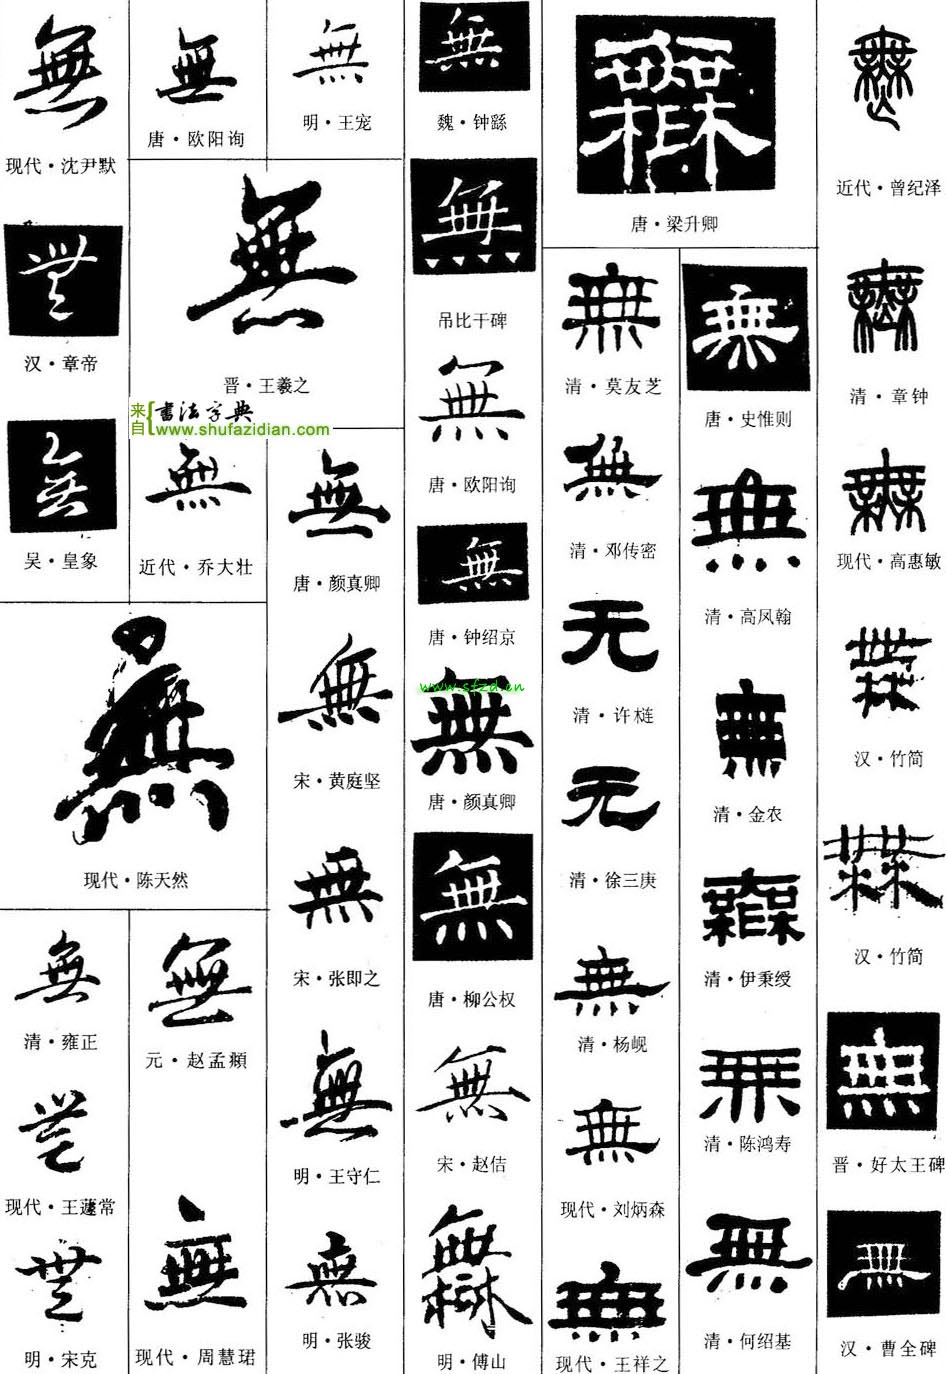 無
现代·沈尹默
無
汉·章帝
無
吴·皇象
無
唐·欧阳询
無
明·王宠
無
晋·王羲之
来自{書法字典
www.shufazidian.com
無
近代·乔大壮
無
现代·陈天然
無
清·雍正
無
现代·王蘧常
無
明·宋克
無
元·赵孟頫
無
现代·周慧珺
無
唐·颜真卿
無
宋·黄庭坚
無
宋·张即之
無
明·王守仁
無
明·张骏
無
魏·钟繇
無
吊比干碑
無
唐·欧阳询
無
唐·钟绍京
www.sfzd.cn
無
唐·颜真卿
無
唐·柳公权
無
宋·赵佶
無
明·傅山
無
唐·梁升卿
無
清·莫友芝
無
清·邓传密
无
清·许梿
无
清·徐三庚
無
清·杨岘
無
现代·刘炳森
無
现代·王祥之
無
唐·史惟则
無
清·高凤翰
無
清·金农
無
清·伊秉绶
無
清·陈鸿寿
無
清·何绍基
無
近代·曾纪泽
無
清·章钟
無
现代·高惠敏
無
汉·竹简
無
汉·竹简
無
晋·好太王碑
無
汉·曹全碑